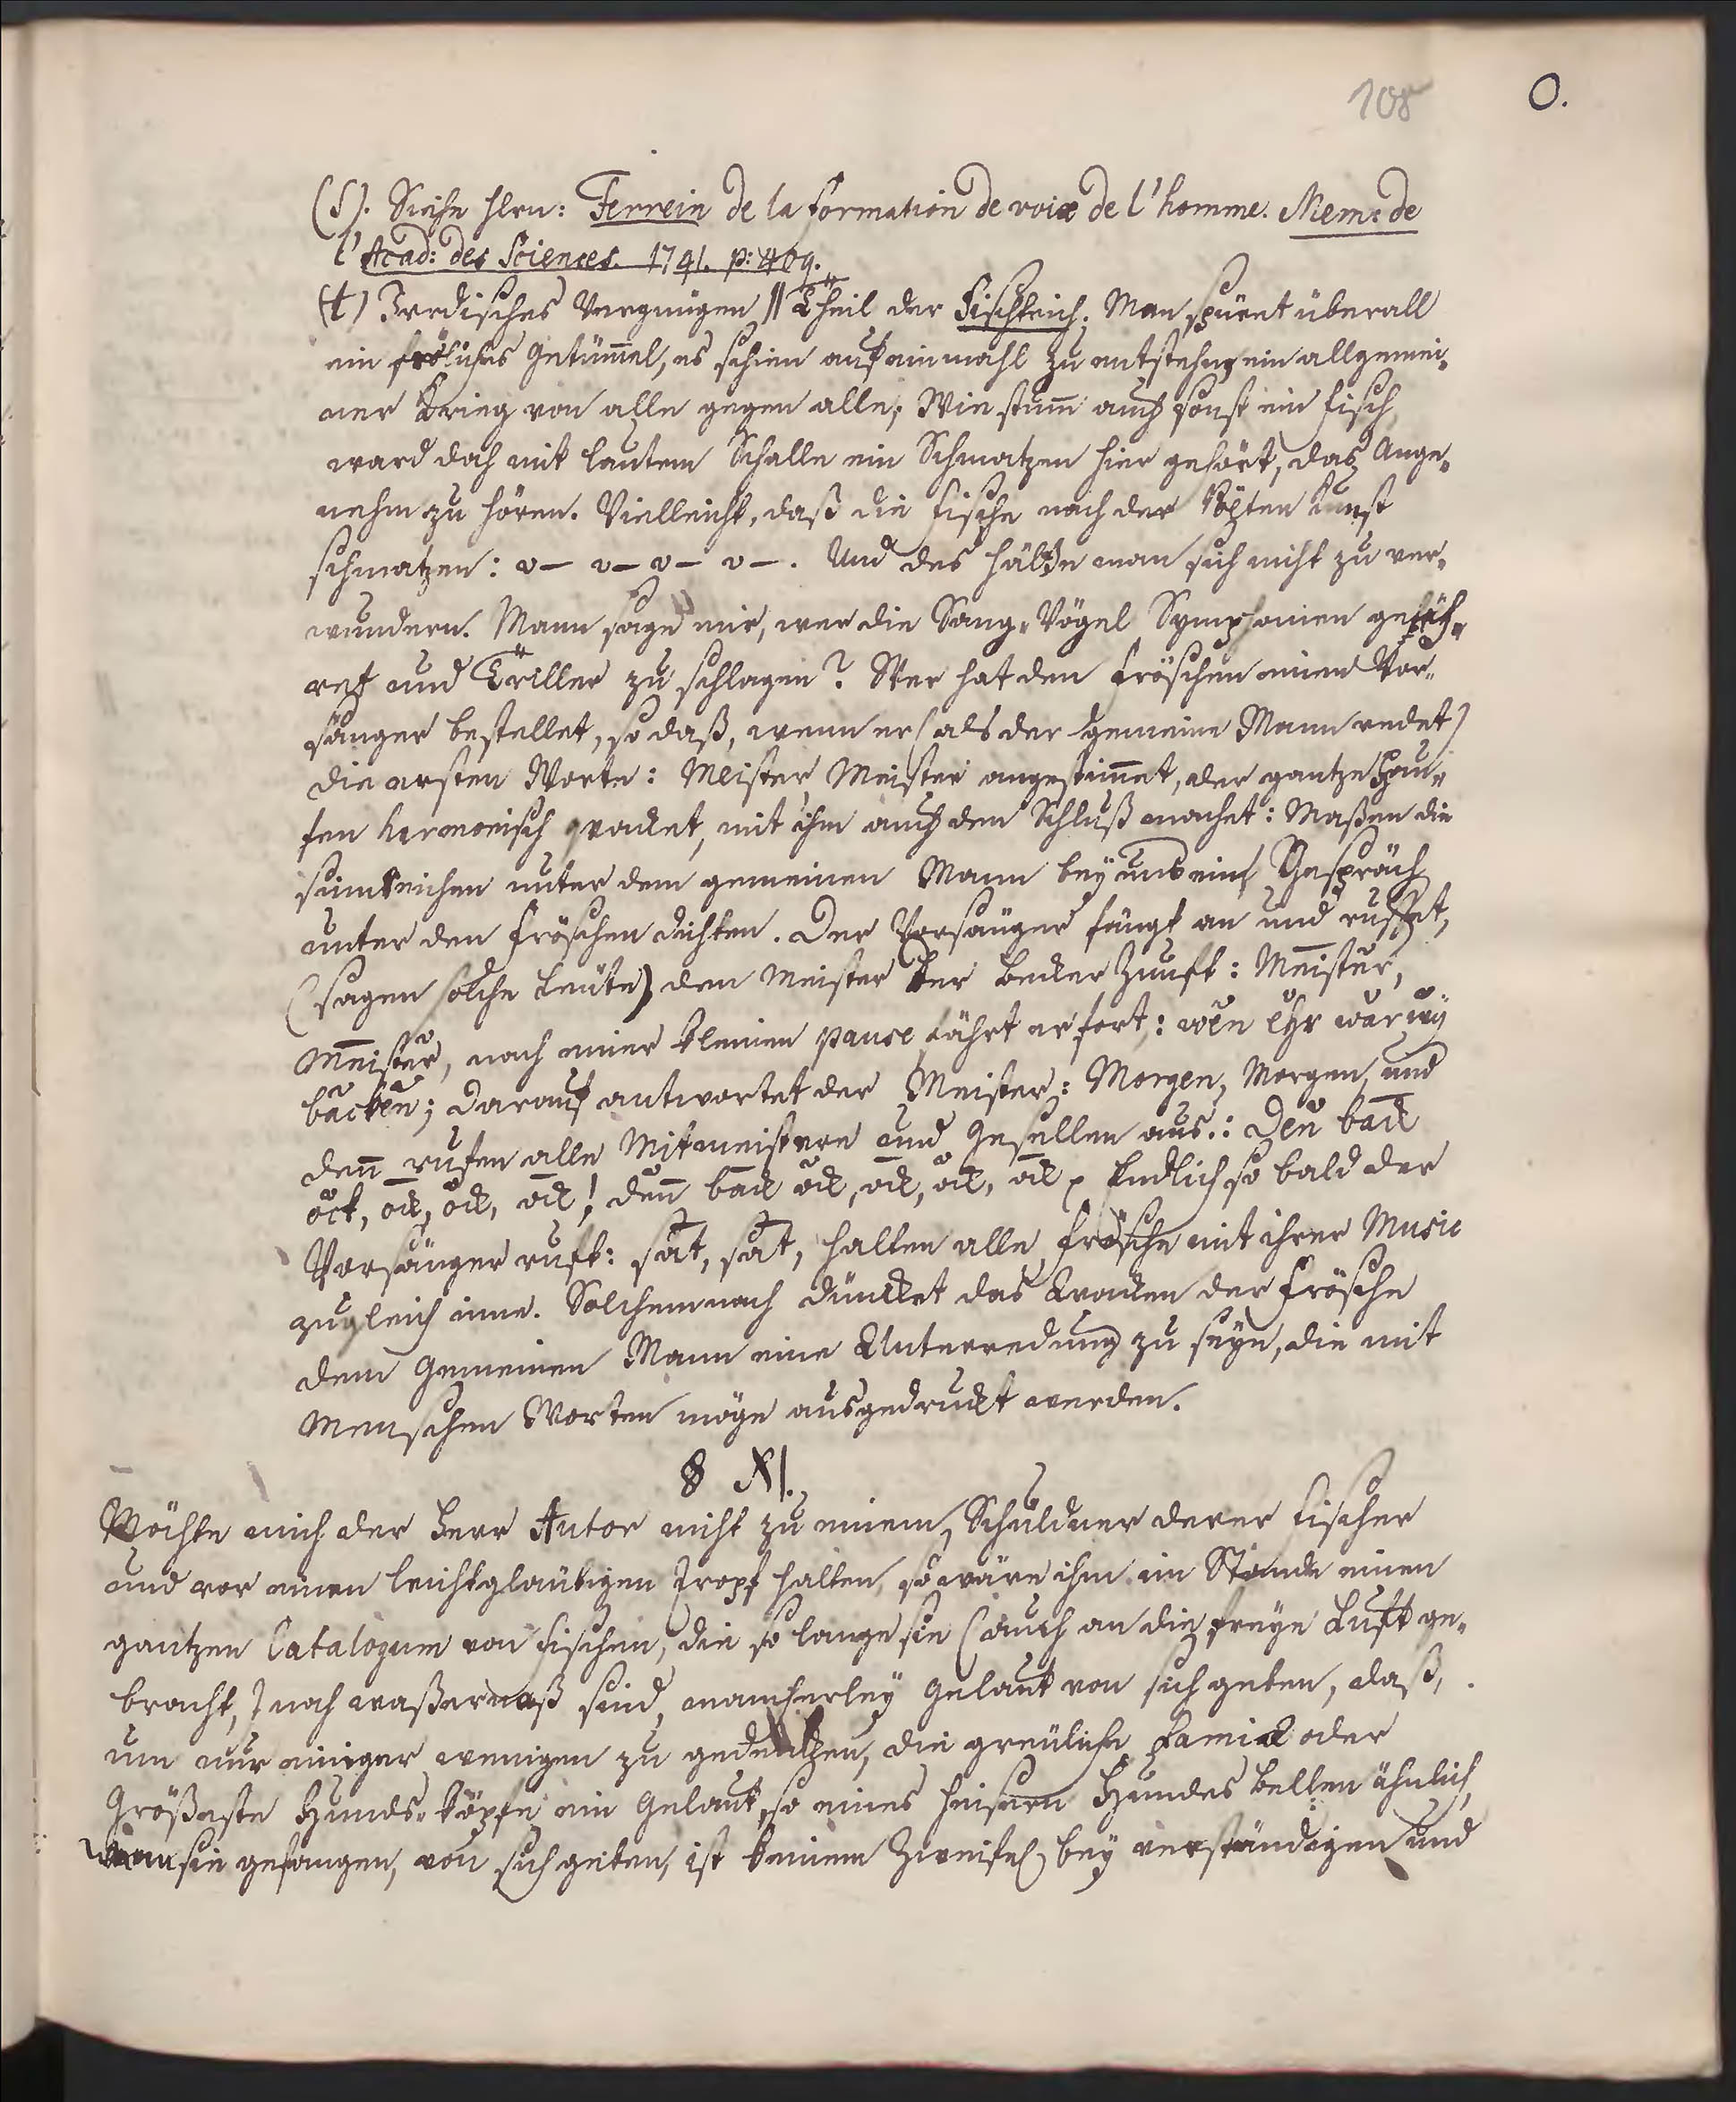 108 O.
(s). Siehe Hrn: Ferrein de la formation de voix de l'homme. Mem: de
l'Acad: des Sciences. 1741. p: 409.
(t) Irrdisches Vergnügen II Theil der Fischteich. Man spüret überall
ein fröliches Getümmel, es schien auf einmahl zu entstehn, ein allgemei-
ner Krieg von alle gegen alle; Wie stumm auch sonst ein Fisch
ward doch mit lautem Schalle ein Schmatzen hier gehört, das Ange-
nehm zu hören. Vielleicht, daß die Fische nach der Poëten Kunst
schmatzen: v– v– v– v–. Und des hätte man sich nicht zu ver-
wundern. Mann sage mir, wer die Sang-Vögel Symphonien geleh-
ret und Triller zu schlagen? Wer hat den Fröschen einen Vor-
sänger bestellet, so daß, wenn er (als der gemeine Mann redet)
die ersten Worte: Meister, Meister angestimmet, der gantze Hau-
fen harmonisch qvacket, mit ihm auch den Schluß machet: Maßen die
sinnreichen unter dem gemeinen Mann bey uns ein Gespräch
unter den Fröschen dichten. Der Vorsänger fängt an und ruffet,
(sagen solche Leute) den Meister der Becker Zunfft: Meister,
Meister, nach einer kleinen pause fährt er fort: wen ehr war wÿ
backen; Darauf antwortet der Meister: Morgen, Morgen, und
denn rufen alle Mitmeistere und Gesellen aus: Den back
öck, öck, öck, öck! denn back öck, öck, öck, öck Endlich so bald der
Vorsänger ruft: sat, sat, halten alle Frösche mit ihrer Music
zugleich inne. Solchemnach düncket das Qvacken der Frösche
dem Gemeinen Mann eine Unterredung zu seyn, die mit
Menschen Worten möge ausgedruckt werden.
§ XI.
Möchte mich der Herr Autor nicht zu einem Schuldner derer Fischer
und vor einen leichtgläubigen Tropf halten, so wäre ihm im Stande einen
gantzen Catalogum von Fischen, die so lange sie (auch an die freye Luft ge-
bracht,) noch waßernaß sind, mancherley Gelaut von sich geben, daß,
um nur einiger wenigen zu gedencken, die greuliche Lamiæ oder
Größeste Hunds-Köpfe ein Gelaut, so eines heisern Hundes bellen ähnlich,
wenn sie gefangen, von sich geben, ist keinem Zweifel bey verständigen und